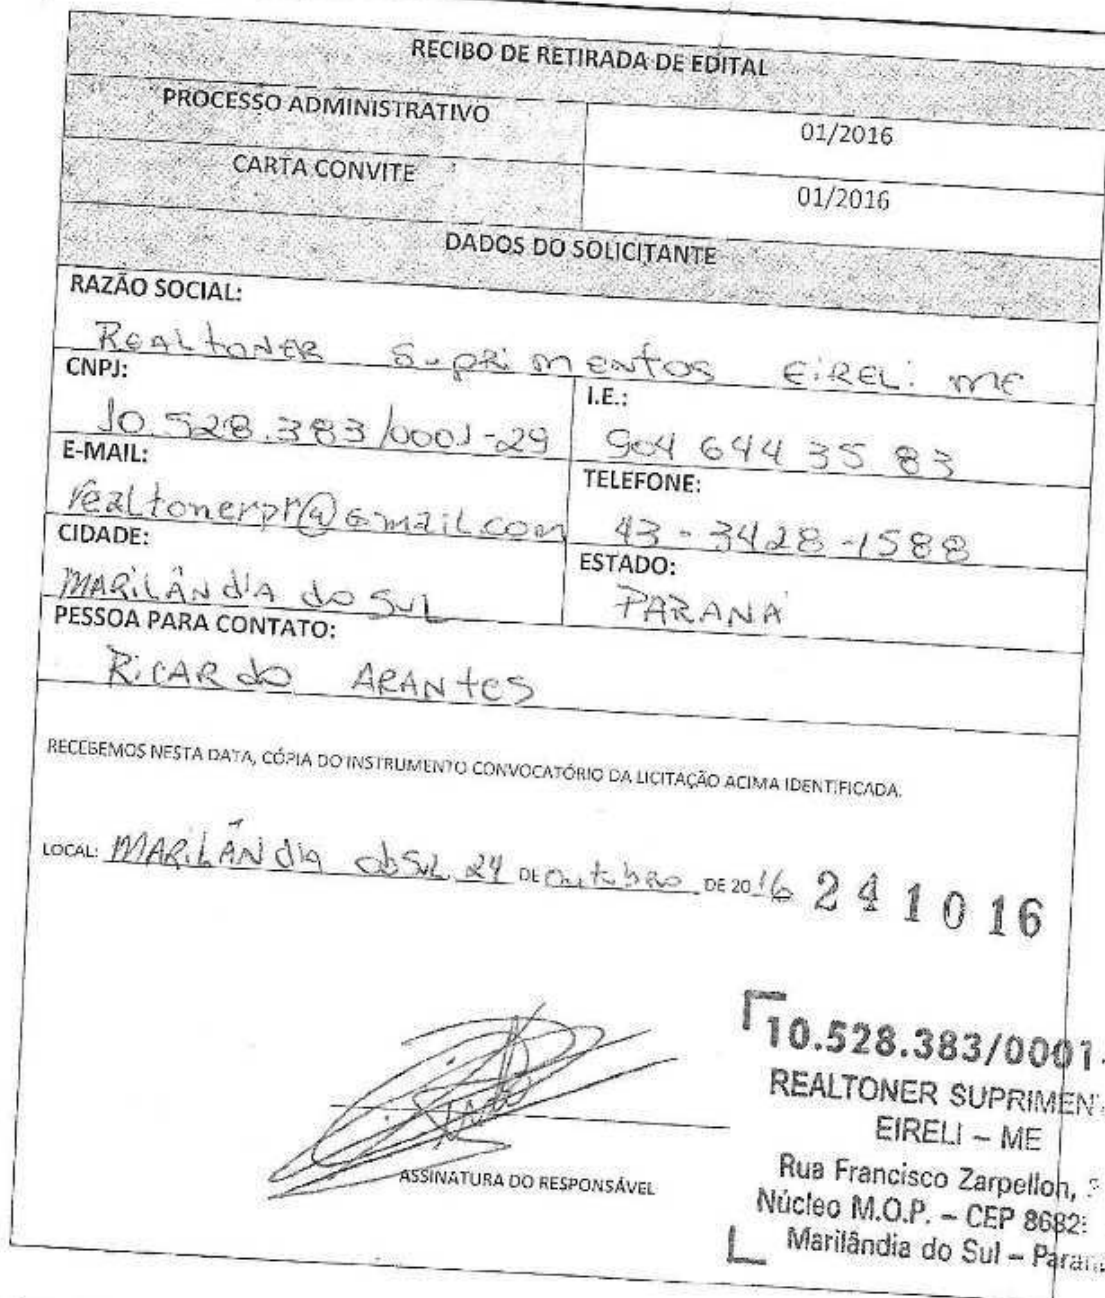 RECIBO DE RETIRADA DE EDITAL
PROCESSO ADMINISTRATIVO 01/2016
CARTA CONVITE 01/2016
DADOS DO SOLICITANTE
RAZÃO SOCIAL:
REALtONER SuPRiMENtOS EiRELi ME
CNPJ: I.E.:
10.528.383/0001-29 904 644 35 83
E-MAIL: TELEFONE:
realtonerpr@Gmail.com 43-3428-1588
CIDADE: ESTADO:
MARiLÂNdiA do SuL PARANÁ
PESSOA PARA CONTATO:
RiCARdo ARANtES
RECEBEMOS NESTA DATA, CÓPIA DO INSTRUMENTO CONVOCATÓRIO DA LICITAÇÃO ACIMA IDENTIFICADA.
LOCAL: MARiLÂNdia do SuL 24 DE Outubro DE 2016 24 10 16
10.528.383/0001-
REALTONER SUPRIMEN
EIRELI – ME
Rua Francisco Zarpellon,
Núcleo M.O.P. – CEP 8682
Marilândia do Sul – Paran
ASSINATURA DO RESPONSÁVEL